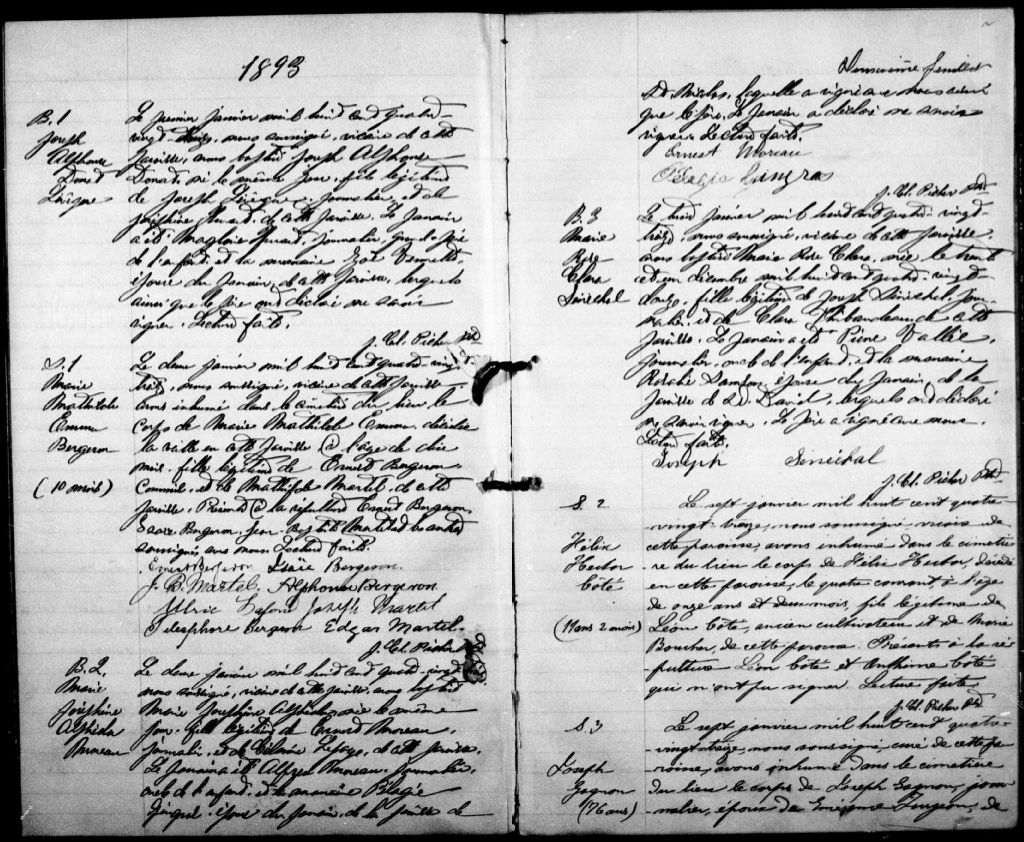 1893
B. 1
Joseph
Alphonse
Donat
Lévêque
Le premier janvier mil huit cent quatre
vingt-treize, nous soussigné, vicaire de cette
paroisse, avons baptisé Joseph Alphonse
Donat, né le même jour, fils légitime
de Joseph Lévêque, journalier, et de
Joséphine de cette paroisse. Le parrain
a été journalier, grand-père
de l'enfant, et la marraine Zoé
épouse du parrain, de cette paroisse, lesquels
ainsi que le père ont déclaré ne savoir
signer. Lecture faite.
J. Cl. Picher Ptre
S. 1
Marie
Mathilde
Emma
Bergeron
(10 mois)
Le deux janvier mil huit cent quatre-vingt
treize, nous soussigné, vicaire de cette paroisse
avons inhumé dans le cimetière du lieu le
corps de Marie Mathilde Emma, décédée
la veille en cette paroisse à l'age de dix
mois, fille légitime de Ernest Bergeron
Commis, et de Mathilde Martel, de cette
paroisse. Présents à la sépulture Ernest Bergeron,
Bergeron, Jean Bte Martel
soussignés avec nous. Lecture faite.
Ernest Bergeron Bergeron
J. B. Martel, Alphonse Bergeron
Ulric Lafond Joseph Martel
Télesphore Bergeron Edgar Martel
J. Cl. Picher Ptre
B. 2.
Marie
Joséphine
Alphéda
Moreau
Le deux janvier mil huit cent quatre-vingt
nous soussigné, vicaire de cette paroisse, avons baptisé
Marie Joséphine Alphéda, née le même
jour, fille légitime de Moreau,
journalier, et de Lepage, de cette paroisse.
Le parrain a été Alfred Moreau, journalier,
oncle de l'enfant, et la marraine Pélagie
Gingras, épouse du parrain, de la paroisse de
Deuxième feuillet
St. Nicolas, laquelle a signé avec nous ainsi
que le père. Le parrain a déclaré ne savoir
signer. Lecture faite.
Ernest Moreau
Pélagie Gingras
J. Cl. Picher Ptre
B. 3
Marie
Rose
Clara
Sénéchal
Le huit janvier mil huit cent quatre-vingt-
treize, nous soussigné, vicaire de cette paroisse,
avons baptisé Marie Rose Clara, née le trente
et un décembre mil huit cent quatre-vingt
douze, fille légitime de Joseph Sénéchal, jour-
nalier, et de Clara Thibaudeau de cette
paroisse. Le parrain a été Pierre Vallée,
journalier, oncle de l'enfant, et la marraine
épouse du parrain, de la
paroisse de St. David, lesquels ont déclaré
ne savoir signer. Le père a signé avec nous.
Lecture faite.
Joseph Sénéchal
J. Cl. Picher Ptre
S. 2
Félix
Hector
Côté
(11 ans 2 mois)
Le sept janvier mil huit cent quatre-
vingt-treize, nous soussigné, vicaire de
cette paroisse, avons inhumé dans le cimetiè-
re du lieu le corps de Félix Hector, décédé
en cette paroisse, le quatre courant à l'âge
de onze ans et deux mois, fils légitime de
Léon Côté, ancien cultivateur et de Marie
Boucher, de cette paroisse. Présents à la sé-
pulture Léon Côté et Anthime Côté
qui n'ont pu signer. Lecture faite.
J. Cl. Picher Ptre
S. 3
Joseph
Gagnon
(76 ans)
Le sept janvier mil huit cent quatre-
vingt-treize, nous soussigné, curé de cette pa-
roisse, avons inhumé dans le cimetière
du lieu le corps de Joseph Gagnon, jour-
nalier, époux de Turgeon, de